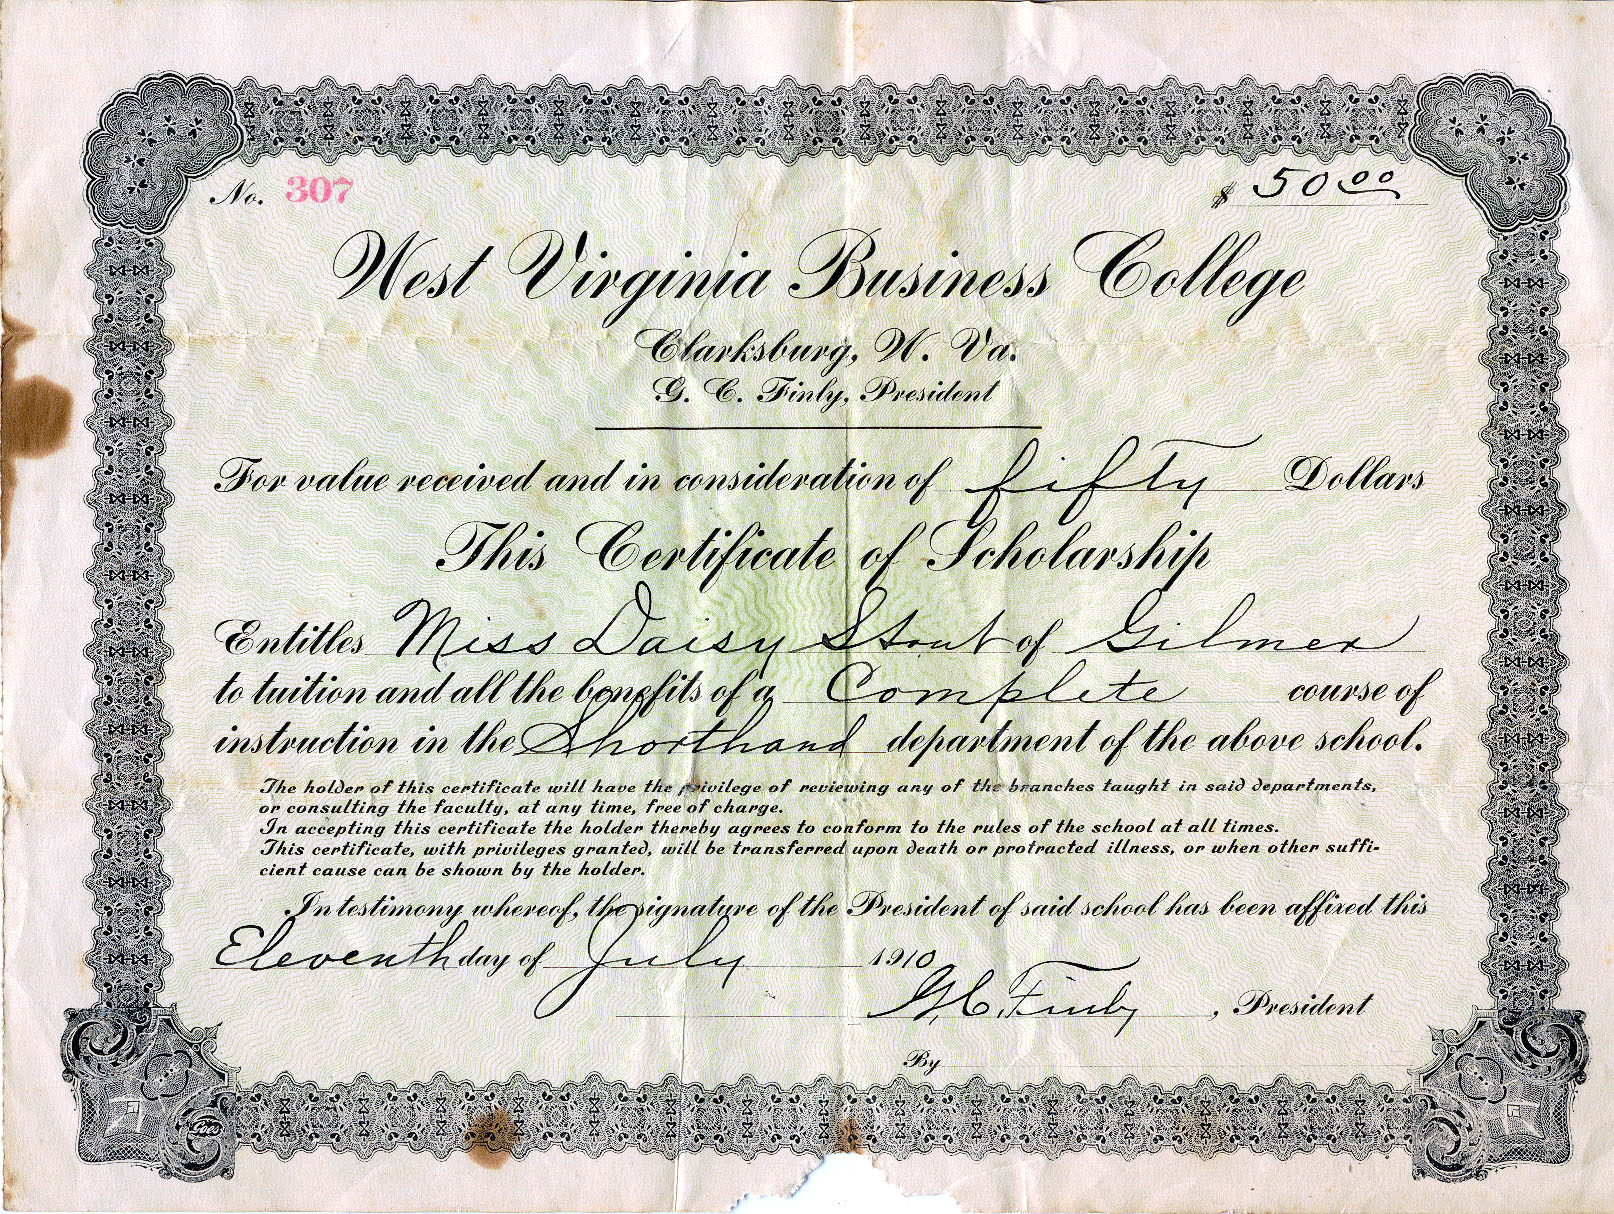 No. 307
$ 50.00
West Virginia Business College
Clarksburg, W. Va.
G. C. Finly, President
For value received and in consideration of fifty Dollars
This Certificate of Scholarship
Entitles Miss Daisy Stout of Gilmer
to tuition and all the benefits of a Complete course of
instruction in the Shorthand department of the above school.
The holder of this certificate will have the privilege of reviewing any of the branches taught in said departments,
or consulting the faculty, at any time, free of charge.
In accepting this certificate the holder thereby agrees to conform to the rules of the school at all times.
This certificate, with privileges granted, will be transferred upon death or protracted illness, or when other suffi-
cient cause can be shown by the holder.
In testimony whereof, the signature of the President of said school has been affixed this
Eleventh day of July 1910
G. C. Finly, President
By